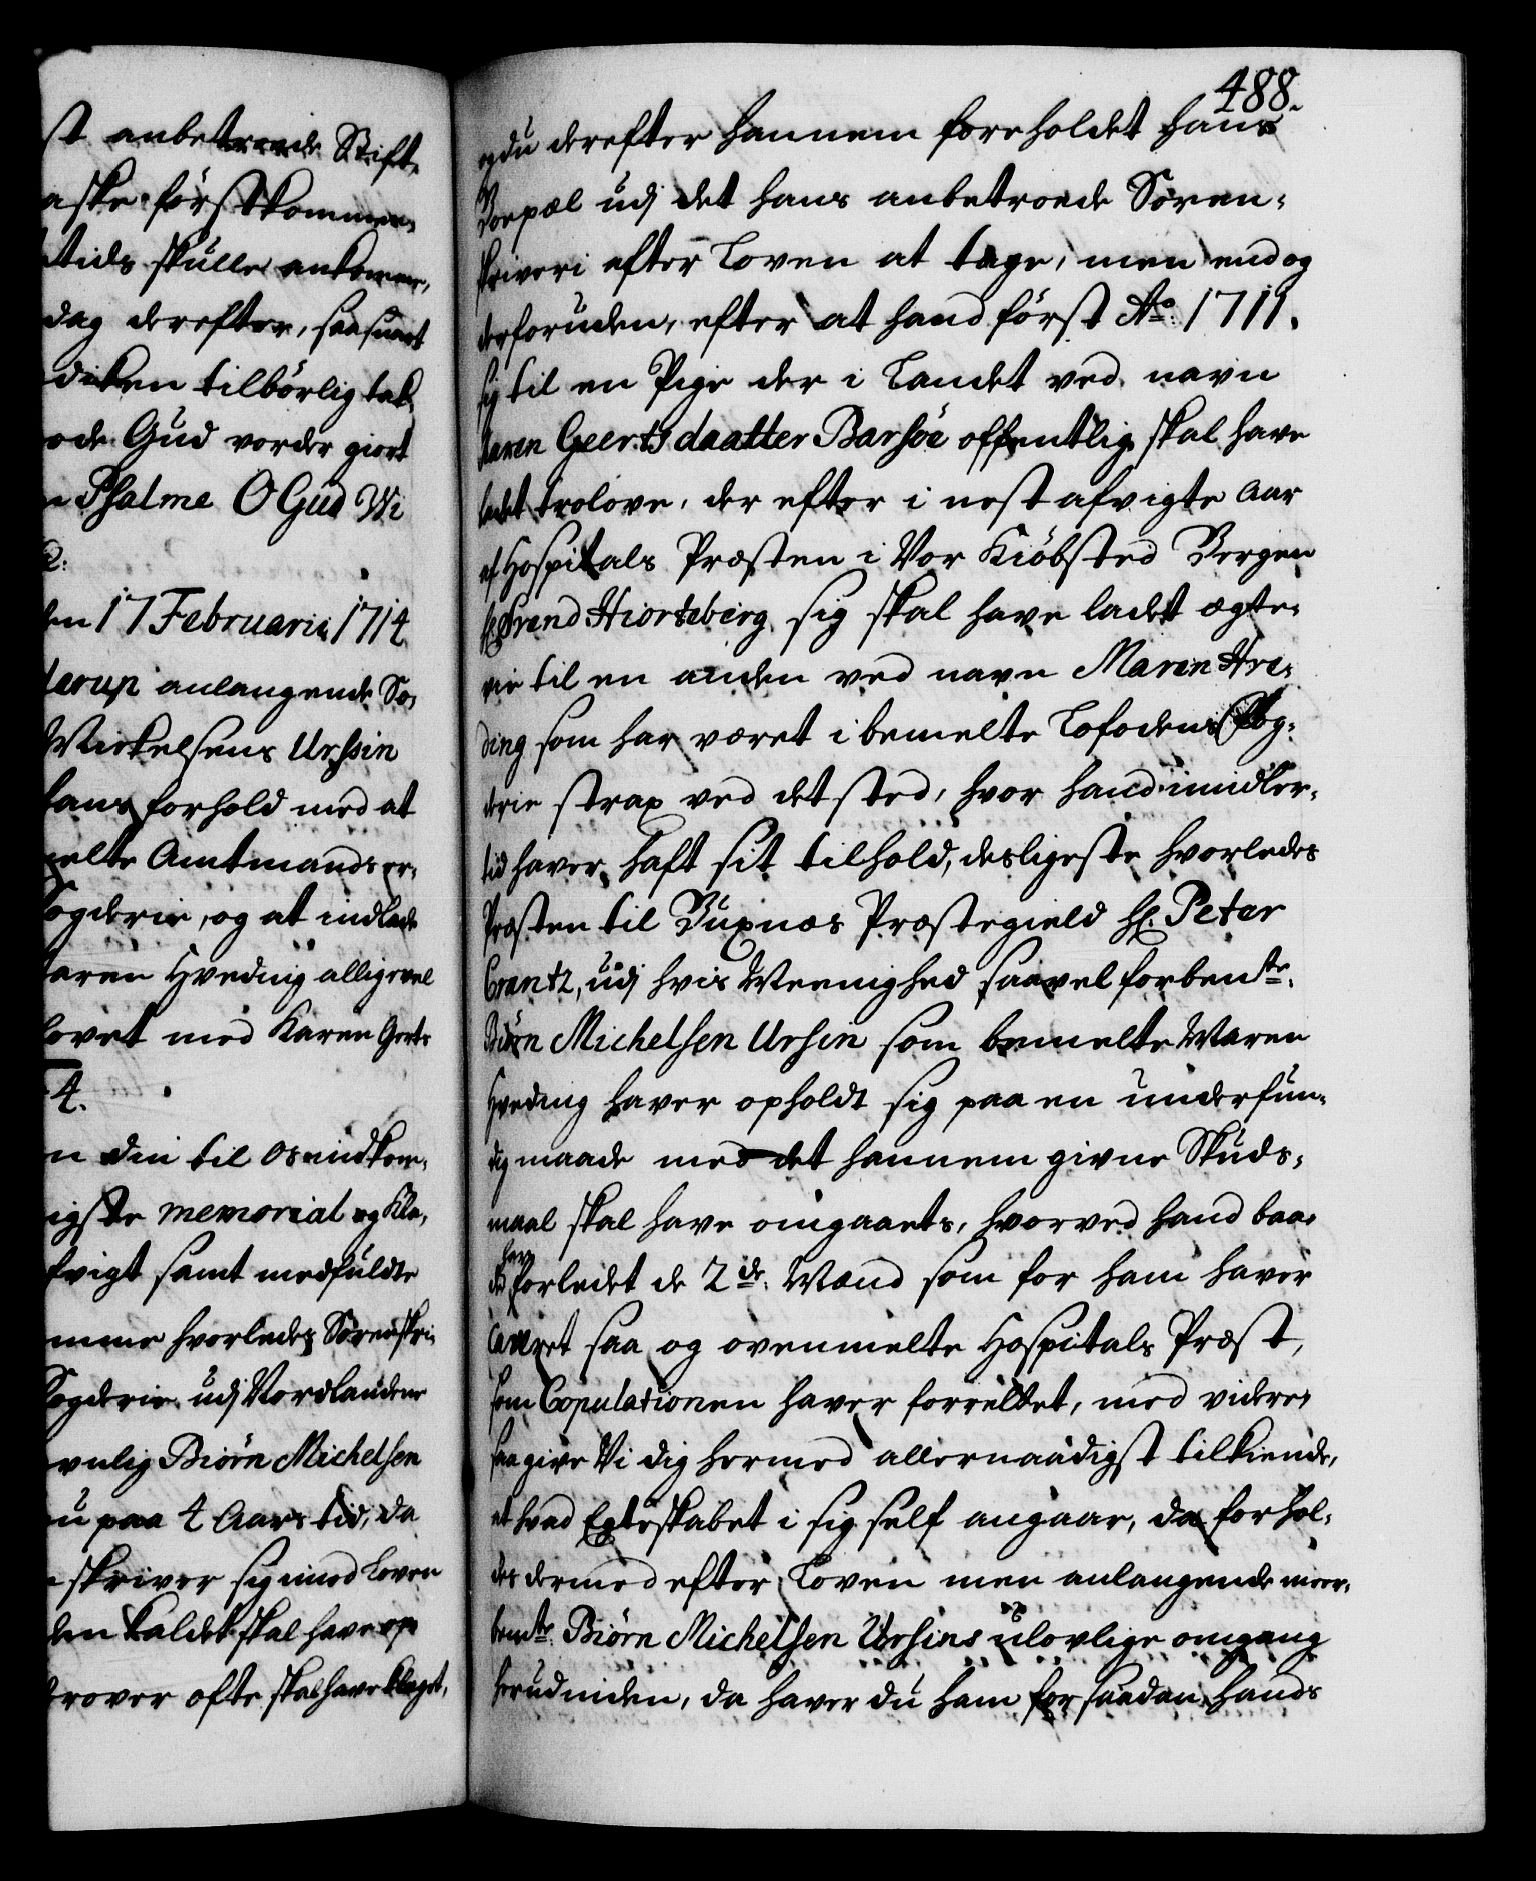 st anbetroede Stift,
aske förstkommen,
tids skulle ankomme,
dag derefter, saasnart
diken tilbörlig tak
ode Gud vorder giort
n Psalme O Gud Wi
den 17 Februarii 1714
terup anlangende So,
Mickelsens Urssin
hans forhold med at
melte Amtmands er,
Fogderie, og at indlade
aren Hveding alligevel
lovet med Karen Gerts
4.
n din til Os indkom,
igste memorial og Kla,
fvigt samt medfuldte
mme hvorledes Sörenskri
Fogderie udj Nordlandene
vnlig Biörn Michelsen
u paa 4 Aars tid, da
skriver sig imod Loven
den kaldet skal have op
rover ofte skal have klaget,
488.
og du derefter hannem foreholdet hans
Boepæl udj det hans anbetroede Sören,
skriveri efter Loven at tage, men end og
desforuden, efter at hand först Ao. 1711.
sig til en Pige der i Landet ved navn
Karen Geertsdaatter Barsöe offentlig skal have
ladet trolove, der efter i nest afvigte aar
af Hospitals Præsten i Vor Kiöbsted Bergen
hr. Trend Hiorteberg sig skal have ladet ægte,
vie til en anden ved navn Maren Hve,
ding som har været i bemelte Lofodens Fog,
derie strax ved det sted, hvor hand imidler,
tid haver haft sit tilhold, desligeste hvorledes
Præsten til Buxnæs Præstegield hr. Peter
Crantz, udj hvis Meenighed saavel forbente.
Biörn Michelsen Ursin som bemelte Maren
Hveding haver opholdt sig paa en underfun,
dig maade med det hannem givne Skuds,
maal skal have omgaaets, hvorved hand baa,
de har forledet de 2de. Mænd som for ham haver
caveret saa og ovenmelte Hospitals Præst,
som Copulationen haver forrettet, med videre,
saa give Vi dig hermed allernaadigst tilkiende,
at hvad Egteskabet i sig self angaar, da forhol,
des dermed efter Loven men anlangende meer,
bemte. Biörn Michelsen Ursins ulovlige omgang
herudinden, da haver du ham for saadan hands